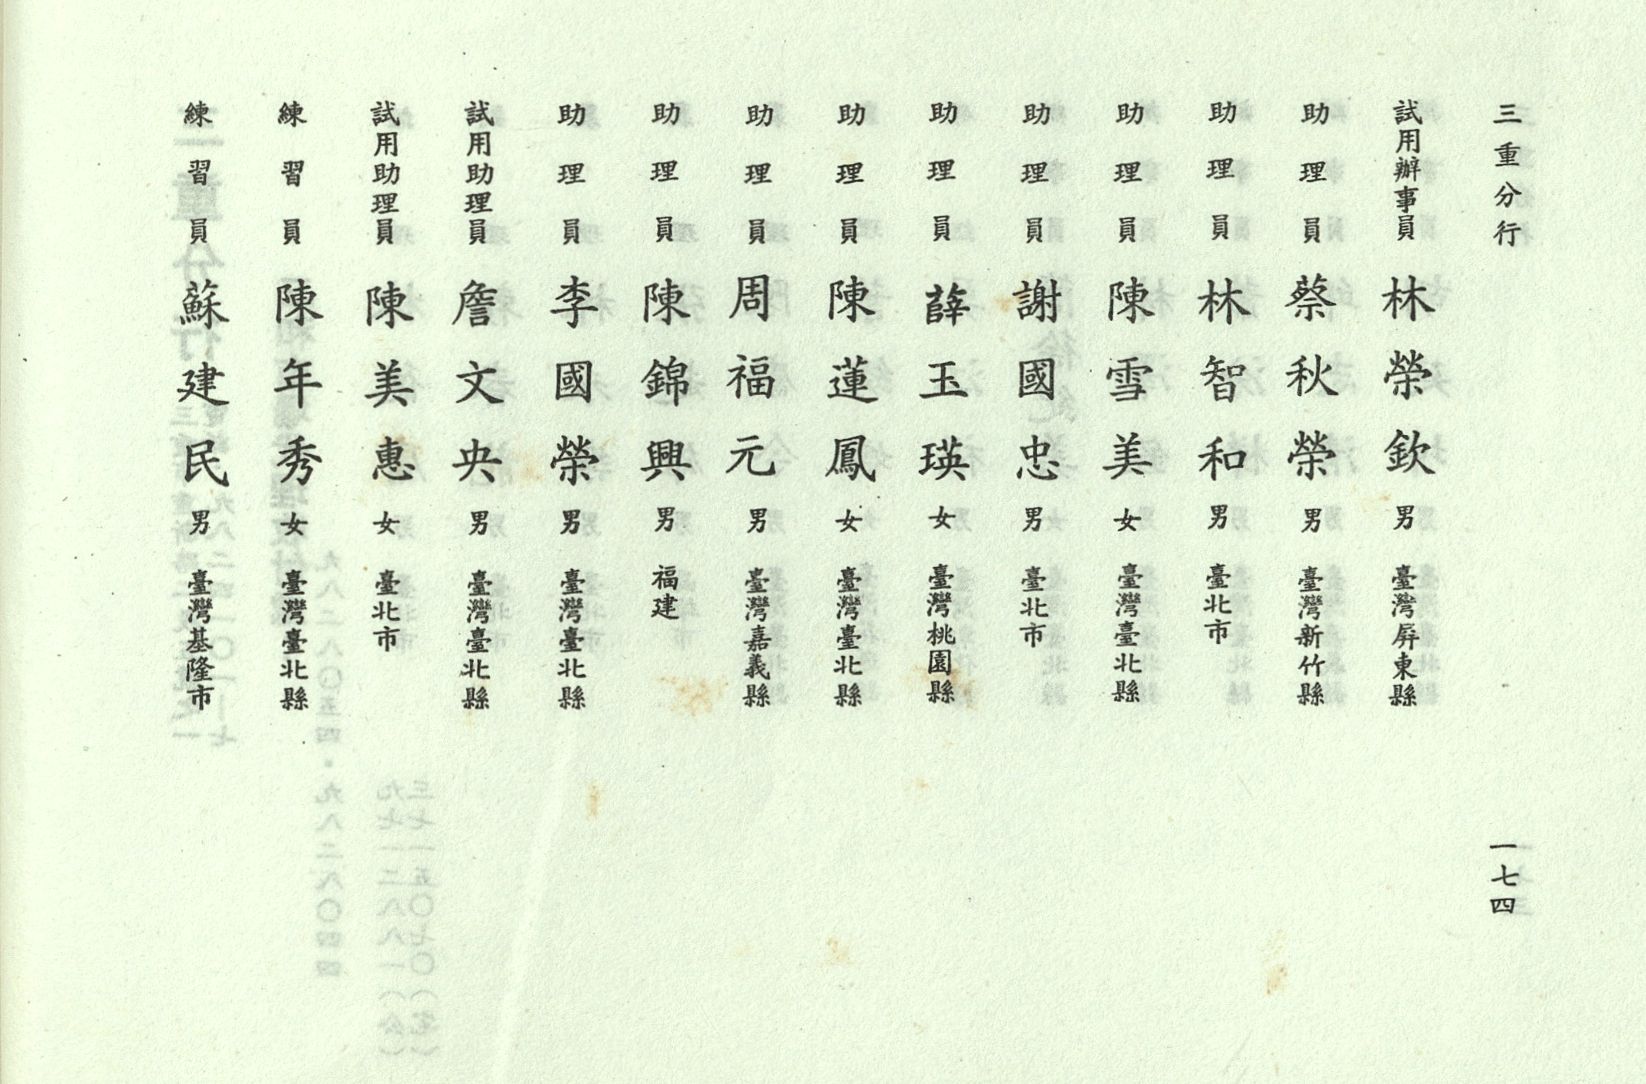 三重分行
試用辦事員 林榮欽 男 臺灣屏東縣
助理員 蔡秋榮 男 臺灣新竹縣
助理員 林智和 男 臺北市
助理員 陳雪美 女 臺灣臺北縣
助理員 謝國忠 男 臺北市
助理員 薛玉瑛 女 臺灣桃園縣
助理員 陳蓮鳳 女 臺灣臺北縣
助理員 周福元 男 臺灣嘉義縣
助理員 陳錦興 男 福建
助理員 李國榮 男 臺灣臺北縣
試用助理員 詹文央 男 臺灣臺北縣
試用助理員 陳美惠 女 臺北市
練習員 陳年秀 女 臺灣臺北縣
練習員 蘇建民 男 臺灣基隆市
一七四